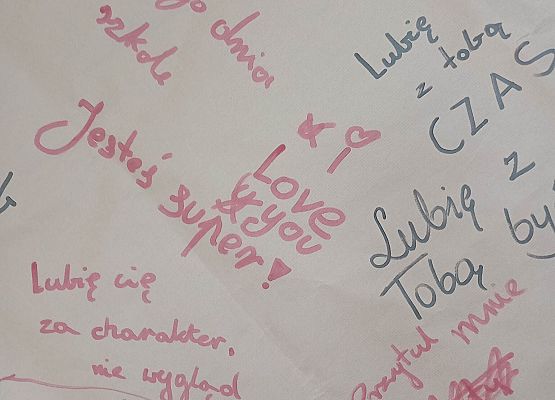 dnia
szkole
Lubię
z tobą
CZAS
Jesteś
super!
Love
you
Lubię z
Tobą by
Lubię cię
za charakter,
nie wygląd
Przytul mnie